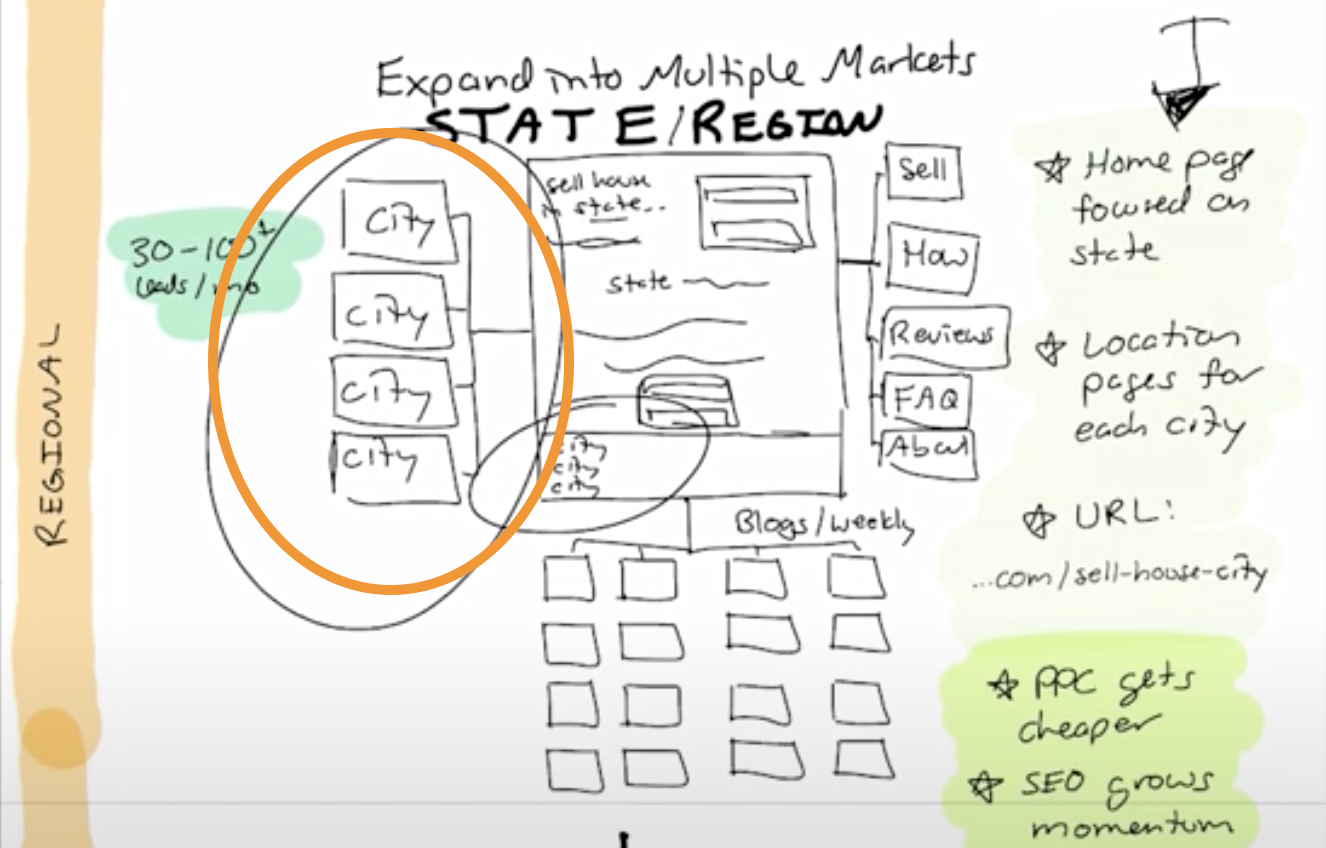 Expand into Multiple Markets
STATE/REGION
REGIONAL
30-100+
Leads/mo
City
City
City
City
sell house
in state...
state
city
city
city
Sell
How
Reviews
FAQ
About
Blogs/weekly
Home page
focused on
state
Location
pages for
each city
URL:
...com/sell-house-city
PPC gets
cheaper
SEO grows
momentum